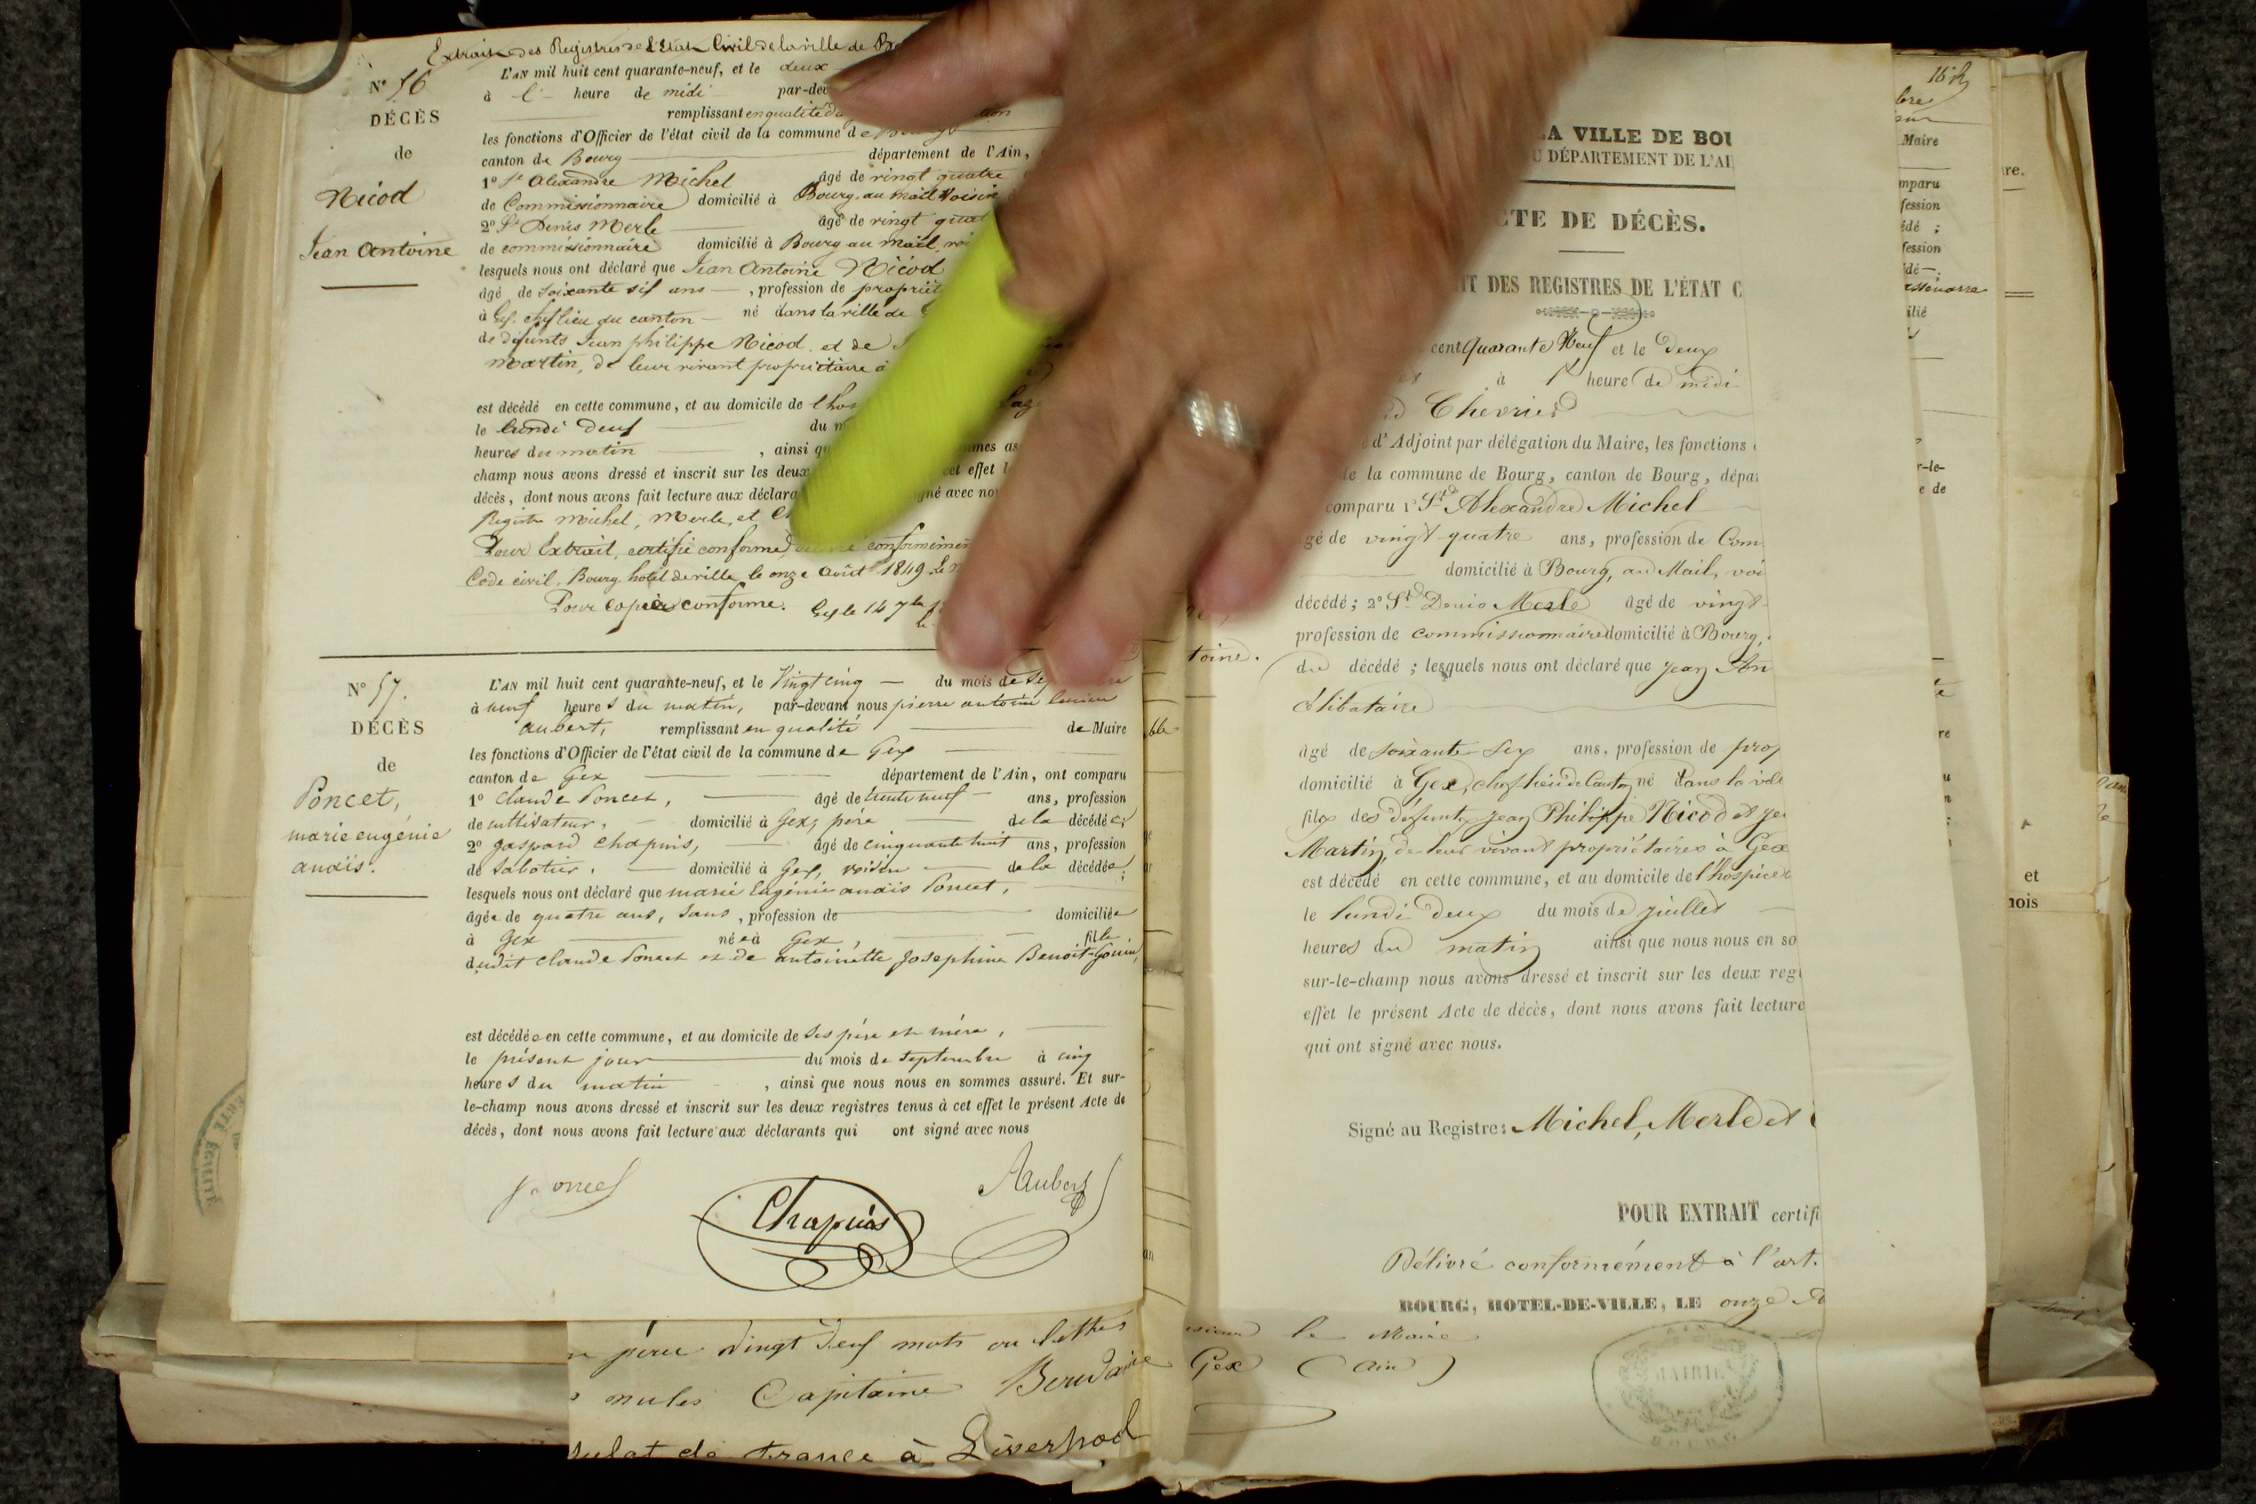 Extrait des Registres de l'Etat Civil de la ville de
N° 56
DÉCÈS
de
Nicod
Jean Antoine
L'AN mil huit cent quarante-neuf, et le deux
à heure de midi par-dev
remplissant en qualité d
les fonctions d'Officier de l'état civil de la commune de
canton de Bourg département de l'Ain,
1° Sr Alexandre Michel âgé de vingt quatre
de Commissionnaire domicilié à Bourg, au mail voisin
2° Sr Denis Merle âgé de vingt quat
de commissionnaire domicilié à Bourg au mail, voi
lesquels nous ont déclaré que Jean Antoine Nicod
âgé de soixante six ans, profession de propriét
à Gex, chef lieu du canton né dans la ville de
de défunts Jean philippe Nicod, et de
Martin, de leur vivant propriétaire à
est décédé en cette commune, et au domicile de l'hos
le lundi deux du m
heures du matin, ainsi qu mmes as
champ nous avons dressé et inscrit sur les deux cet effet l
décès, dont nous avons fait lecture aux déclara gné avec no
Registre Michel, Merle, et
Pour Extrait, certifié conforme conformémen
Code civil. Bourg hotel de ville, le onze Août 1849. Le
Pour copie conforme. Gex le 14 7bre
N° 57.
DÉCÈS
de
Poncet,
marie eugénie
anaïs.
L'AN mil huit cent quarante-neuf, et le Vingt cinq du mois de
à neuf heures du matin, par-devant nous pierre antoine lucien
aubert, remplissant en qualité de Maire
les fonctions d'Officier de l'état civil de la commune de Gex
canton de Gex département de l'Ain, ont comparu
1° Claude Poncet, âgé de trente neuf ans, profession
de cultivateur, domicilié à Gex, père de la décédée;
2° gaspard Chapuis, âgé de cinquante huit ans, profession
de Sabotier, domicilié à Gex, voisin de la décédée;
lesquels nous ont déclaré que marie Eugénie anaïs Poncet,
âgée de quatre ans, sans, profession de domiciliée
à Gex née à Gex, fille
dudit Claude Poncet et de antoinette Josephine Benoit-Gonin,
est décédée en cette commune, et au domicile de ses père et mère,
le présent jour du mois de septembre à cinq
heures du matin, ainsi que nous nous en sommes assuré. Et sur-
le-champ nous avons dressé et inscrit sur les deux registres tenus à cet effet le présent Acte de
décès, dont nous avons fait lecture aux déclarants qui ont signé avec nous
Poncet
Chapuis
Aubert
pour vingt deux mots ou lettres
nules Capitaine
sulat de France à Liverpool
toine.
LA VILLE DE BOU
U DÉPARTEMENT DE L'AI
CTE DE DÉCÈS.
IT DES REGISTRES DE L'ÉTAT C
cent quarante Neuf et le Deux
à heure de midi
Chevrier
d'Adjoint par délégation du Maire, les fonctions
de la commune de Bourg, canton de Bourg, dépar
comparu 1° Sr Alexandre Michel
gé de vingt-quatre ans, profession de Com
domicilié à Bourg, au Mail, voi
décédé; 2° Sr Denis Merle âgé de vingt-
profession de commissionnaire domicilié à Bourg,
du décédé; lesquels nous ont déclaré que Jean An
célibataire
âgé de soixante-six ans, profession de prop
domicilié à Gex, chef lieu de Canton, né dans la vill
fils des défunts Jean Philippe Nicod et
Martin, de leur vivant propriétaires à Gex
est décédé en cette commune, et au domicile de l'hospice
le lundi deux du mois de juillet
heures du matin ainsi que nous nous en so
sur-le-champ nous avons dressé et inscrit sur les deux regi
effet le présent Acte de décès, dont nous avons fait lecture
qui ont signé avec nous.
Signé au Registre: Michel, Merle et
POUR EXTRAIT certifi
Délivré conformément à l'art.
BOURG, HOTEL-DE-VILLE, LE onze
le Maire
Gex (Ain)
MAIRIE
BOURG
Maire
mparu
fession
édé;
fession
ilié
r-le-
e de
et
mois